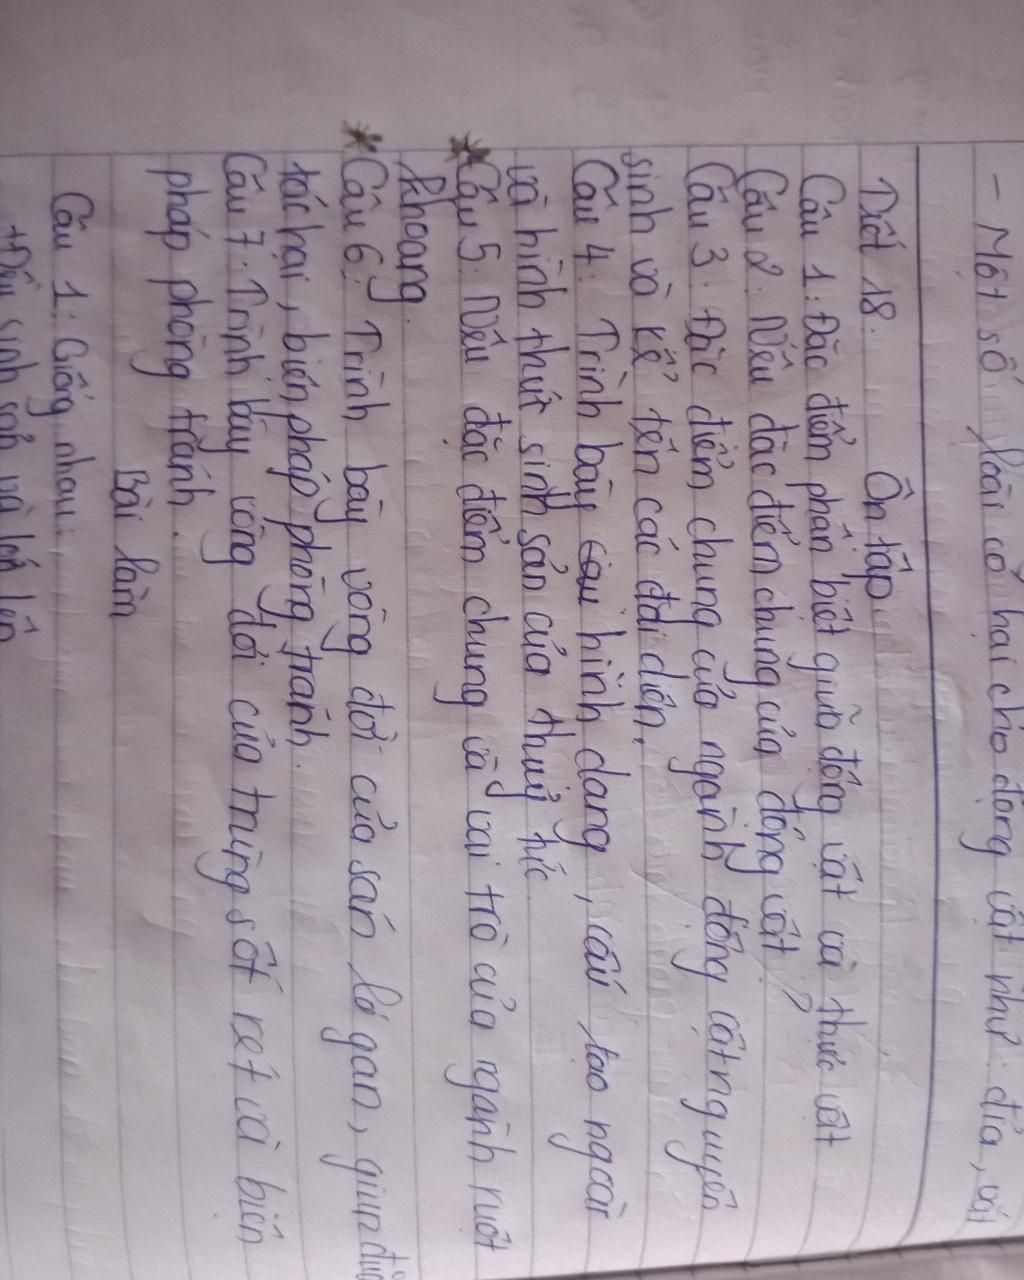 - Một số loài có hại cho động vật như: đỉa, vắt
Tiết 18. Ôn tập
Câu 1: Đặc điểm phân biệt giữa động vật và thực vật
Câu 2: Nêu đặc điểm chung của động vật?
Câu 3: Đặc điểm chung của ngành động vật nguyên
sinh và kể tên các đại diện.
Câu 4: Trình bày hình dạng, cấu tạo ngoài
và hình thức sinh sản của thuỷ tức
*Câu 5: Nêu đặc điểm chung và vai trò của ngành ruột
khoang.
*Câu 6: Trình bày vòng đời của sán lá gan, giun đũa
tác hại, biện pháp phòng tránh.
Câu 7: Trình bày vòng đời của trùng sốt rét và biện
pháp phòng tránh.
Bài làm
Câu 1: Giống nhau:
+Đều sinh sản và lớn lên